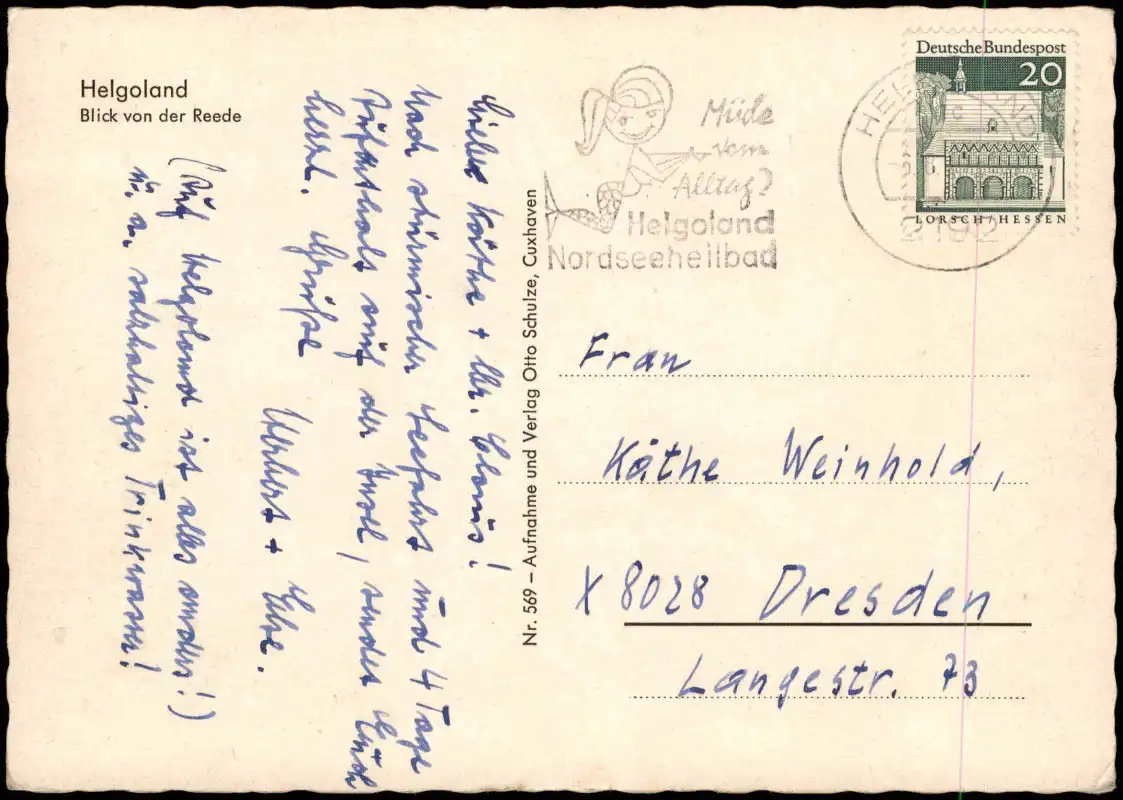 Helgoland
Blick von der Reede
Liebe Käthe + Kl. Claus!
Nach stürmischer Seefahrt und 4 Tage
Aufenthalt auf der Insel, sendet Euch
herzl. Grüße
Herbert + Else.
(Auf Helgoland ist alles anders!)
u. a. salzhaltiges Trinkwasser!
Nr. 569 – Aufnahme und Verlag Otto Schulze, Cuxhaven
Müde
vom
Alltag?
Helgoland
Nordseeheilbad
HELGOLAND
2192
Deutsche Bundespost
20
LORSCH/HESSEN
Frau
Käthe Weinhold,
X 8028 Dresden
Langestr. 73